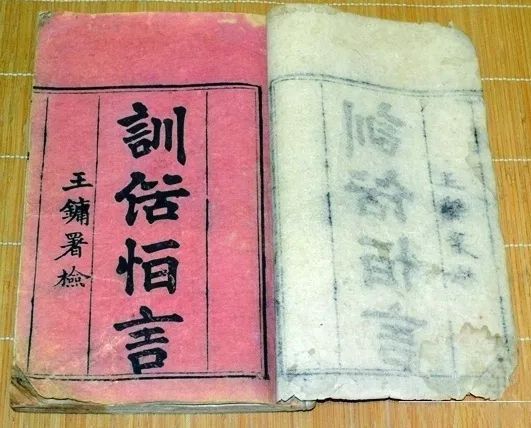 訓俗恒言
王鏞署檢